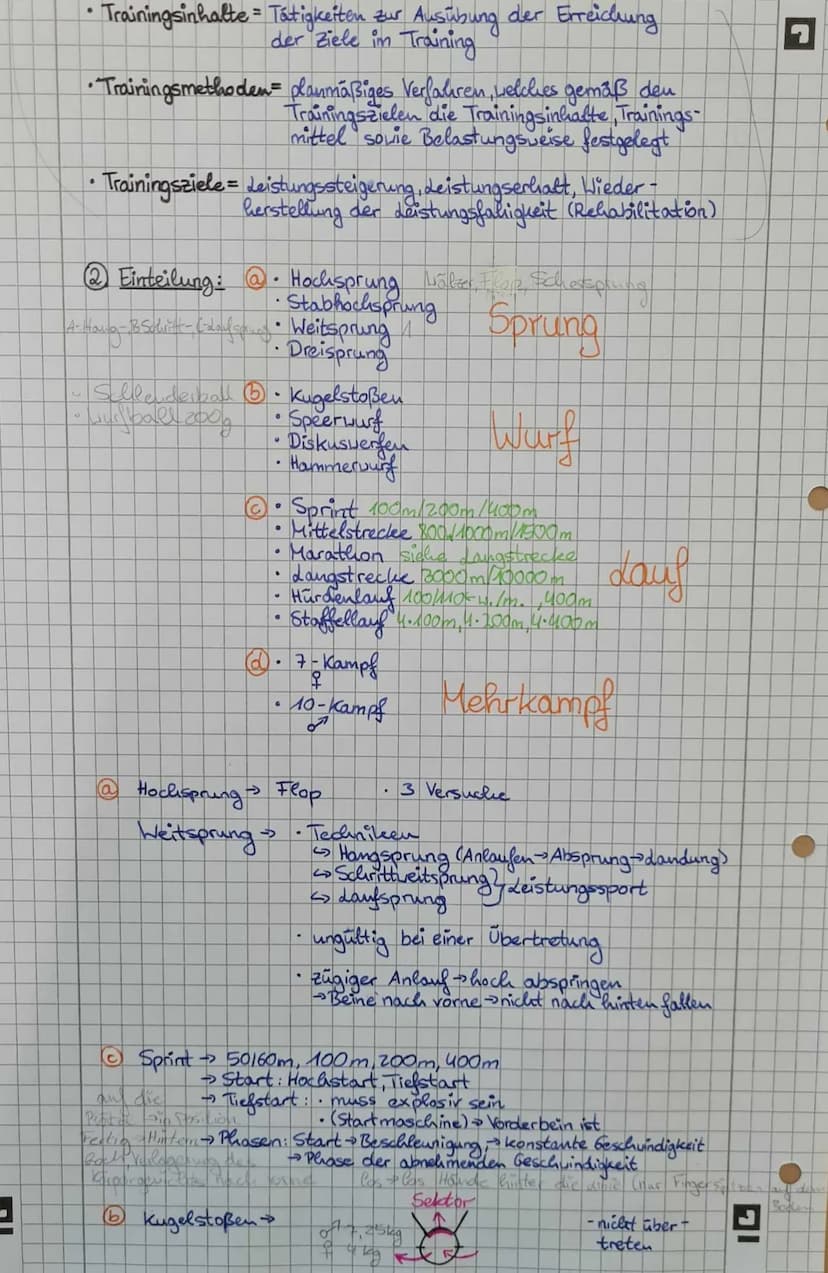 · Trainingsinhalte = Tätigkeiten zur Ausübung der Erreichung
der Ziele im Training
· Trainingsmethoden = planmäßiges Verfahren, welches gemäß den
Trainingszielen die Trainingsinhalte, Trainings-
mittel sowie Belastungsweise festgelegt
· Trainingsziele = Leistungssteigerung, Leistungserhalt, Wieder-
herstellung der Leistungsfähigkeit (Rehabilitation)
② Einteilung: ⓐ · Hochsprung Wälzer, Flop, Schersprung
· Stabhochsprung
A-Hang-, B Schritt-, C Laufsprung · Weitsprung
· Dreisprung
Sprung
- Schleuderball ⓑ · Kugelstoßen
· Wurfball 200g · Speerwurf
· Diskuswerfen
· Hammerwurf
Wurf
ⓒ · Sprint 100m/200m/400m
· Mittelstrecke 800/1000m/1500m
· Marathon siehe Langstrecke
· Langstrecke 3000m/10000m
· Hürdenlauf 100/110 w./m., 400m
· Staffellauf 4·100m, 4·200m, 4·400m
Lauf
ⓓ · 7-Kampf
♀
· 10-Kampf
♂
Mehrkampf
ⓐ Hochsprung → Flop · 3 Versuche
Weitsprung → · Techniken
↳ Hangsprung (Anlaufen→Absprung→Landung)
↳ Schrittweitsprung } Leistungssport
↳ Laufsprung
· ungültig bei einer Übertretung
· zügiger Anlauf → hoch abspringen
→ Beine nach vorne → nicht nach hinten fallen
ⓒ Sprint → 50/60m, 100m, 200m, 400m
→ Start: Hochstart, Tiefstart
auf die → Tiefstart: · muss explosiv sein
Plätze → in Position · (Startmaschine) → Vorderbein ist
Fertig → Hintern → Phasen: Start → Beschleunigung → konstante Geschwindigkeit
hoch Verlagerung des → Phase der abnehmenden Geschwindigkeit
nach vorne Los → Los Hände hinter die Linie (nur Fingerspitzen auf dem
Boden
ⓑ Kugelstoßen → ♂ 7,25kg
♀ 4 kg
Sektor
- nicht über-
treten